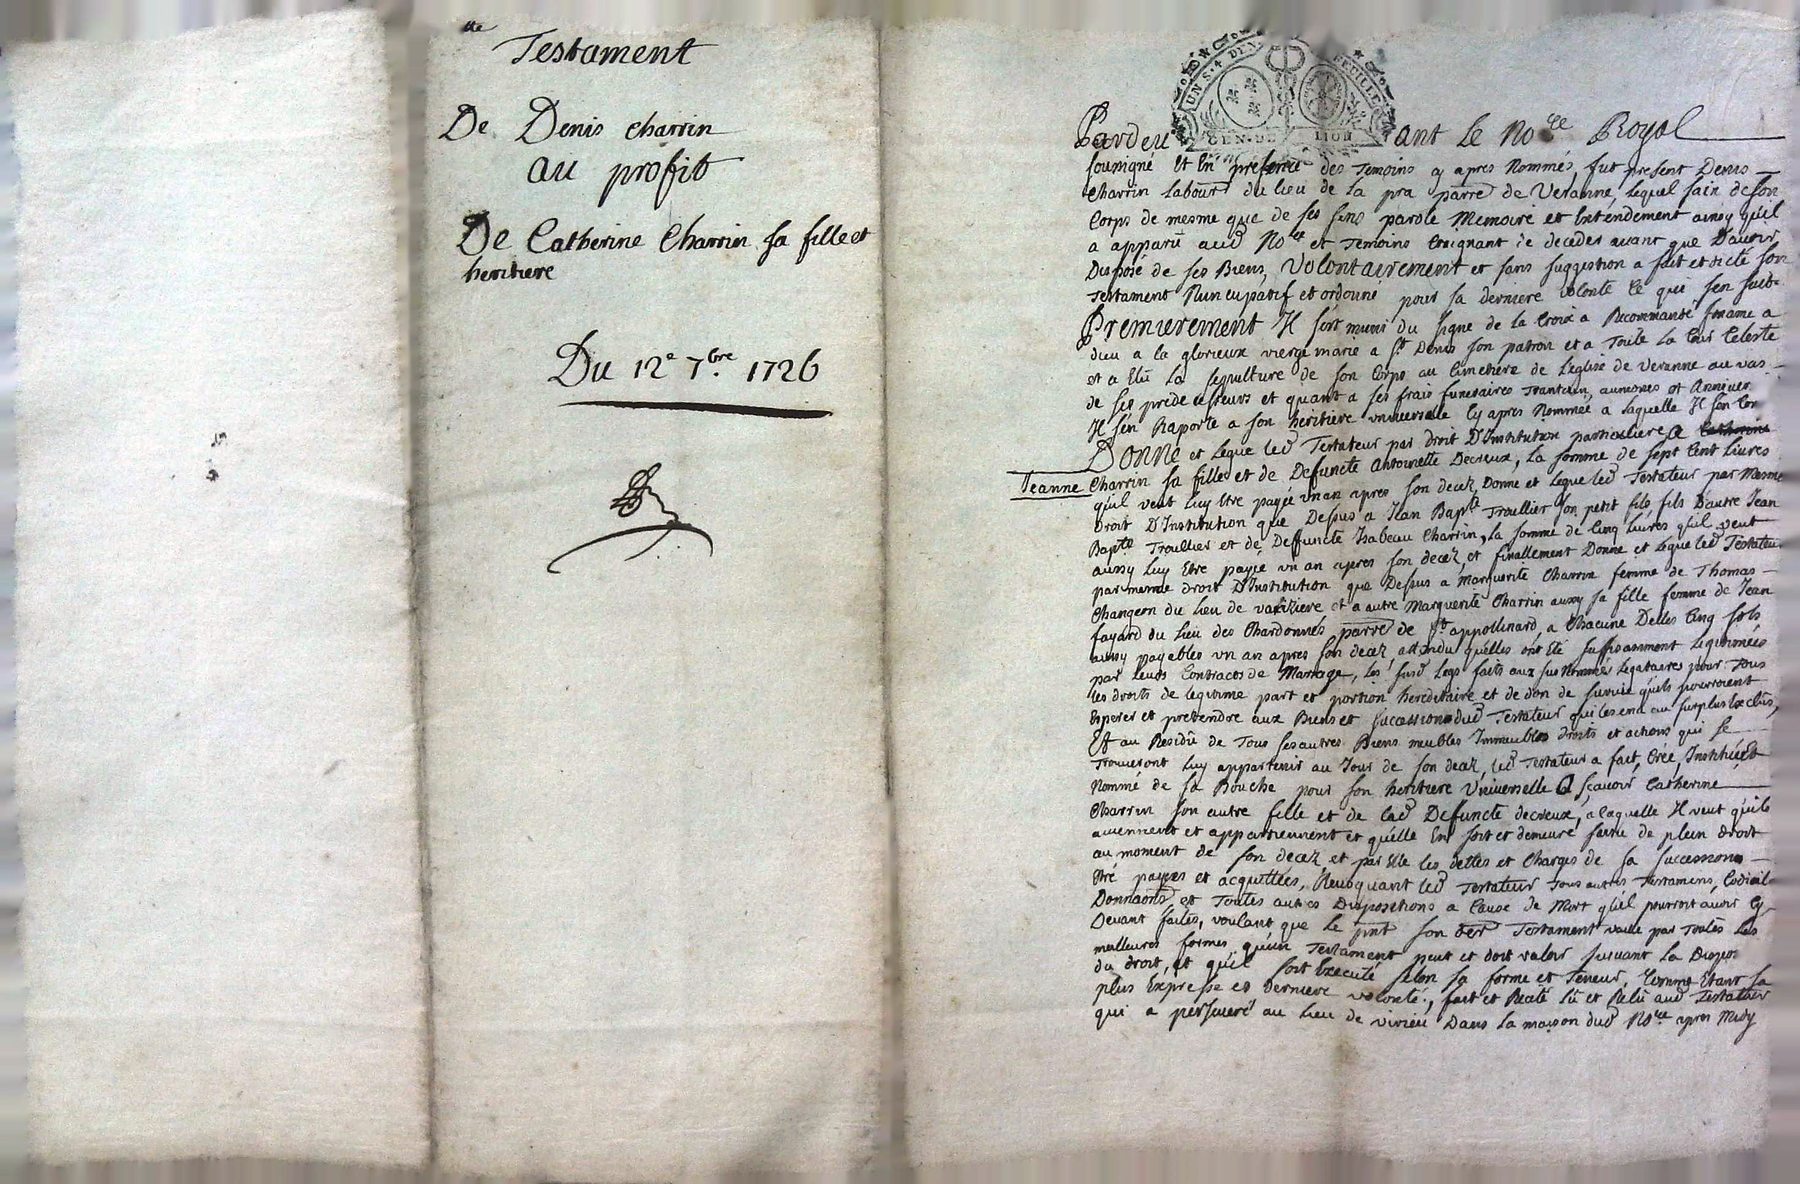 tte
Testament
De Denis charrin
au profit
De Catherine Charrin sa fille et
heritiere
Du 12e 7bre 1726
UN S. 4 DEN. FEUILLE
GEN. DE LION
Pardevant Le Nore Royal
sousigné et En presence des temoins cy apres Nommés, fut present Denis
Charrin labourr du lieu de la pra parre de Veranne, lequel sain de son
Corps de mesme que de ses sens parole Memoire et Entendement ainsy qu'il
a apparu aud Nore et temoins Craignant de deceder avant que D'avoir
Disposé de ses Biens, Volontairement et sans suggestion a fait et dicté son
testament Nuncupatif et ordonné pour sa derniere volonté Ce que s'en suit
Premierement Il s'est muni du signe de la Croix a Recommandé son ame a
dieu a la glorieuse vierge marie a St Denis son patron et a Toute la Cour Celeste
et a Elu La sepulture de son Corps au Cimetiere de L'eglise de Veranne au vas
de ses predecesseurs et quant a ses frais funeraires trantain, aumones et Anniver
Il s'en Raporte a son heritiere universelle Cy apres Nommée a laquelle Il s'en Con
Donne et Legue led Testateur par droit D'Institution particuliere a Catherine
Jeanne Charrin sa fille et de Defuncte Antoinette Decreux, La somme de sept Cent Livres
qu'il veut Luy Etre payée un an apres son decez, Donne et Legue led Testateur par Mesme
droit D'Institution que Dessus a Jean Bapte Troullier son petit fils fils D'autre Jean
Bapte Troullier et de Deffuncte Isabeau Charrin, La somme de Cinq Livres qu'il veut
aussy Luy Etre payée un an apres son decez, et finallement Donne et Legue led Testateur
par meme droit D'Institution que Dessus a Marguerite Charrin femme de Thomas
Changeon du Lieu de variziere et a autre Marguerite Charrin aussy sa fille femme de Jean
fayard du Lieu des Chardonnés parre de St appollinard, a Chacune Delles Cinq sols
aussy payables un an apres son decez attendu qu'elles ont Eté suffisamment Legitimées
par Leurs Contracts de Mariage, Les susd Legs faits aux sus Nommés Legataires pour Tous
les droits de Legitime part et portion hereditaire et de don de survie qu'ils pourroient
Esperer et pretendre aux Biens et successions dud Testateur qui les en a au surplus Exclus,
Et au Residu de Tous ses autres Biens meubles Immeubles droits et actions qui se
Trouveront Luy appartenir au Jour de son decez, led Testateur a fait, Créé, Institué et
Nommé de sa Bouche pour son heritiere Universelle a sçavoir Catherine
Charrin son autre fille et de lad Defuncte decreux, a laquelle Il veut qu'ils
aviennent et appartiennent et qu'elle En soit et demeure saisie de plein droit
au moment de son decez et par Elle les dettes et Charges de sa succession
Etre payées et acquittées, Revoquant led Testateur tous autres Testamens, Codicil
Donnaons et Toutes autres Dispositions a Cause de Mort qu'il pourroit avoir Cy
Devant faites, voulant que Le pnt son der Testament vaille par toutes Les
meilleures formes qu'un Testament peut et doit valoir suivant La Dispo
du droit, et qu'il soit Executé selon sa forme et Teneur, Comme Etant sa
plus Expresse et Derniere volonté, fait et Recité Lû et Relû aud Testateur
qui a perseveré au Lieu de virieu Dans La maison dud Nore apres Midy